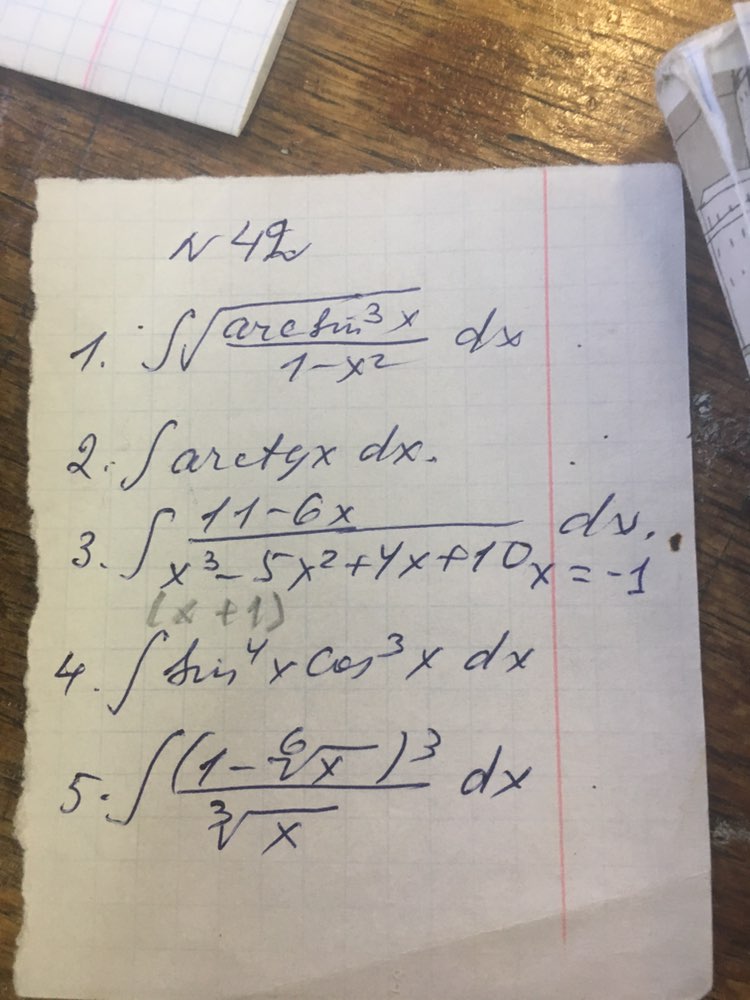 N 42
1. ∫√(arcsin³x / 1-x²) dx
2. ∫ arctgx dx.
3. ∫ (11-6x / x³-5x²+4x+10) dx. x=-1
(x+1)
4. ∫ sin⁴x cos³x dx
5. ∫ ((1-⁶√x)³ / ³√x) dx